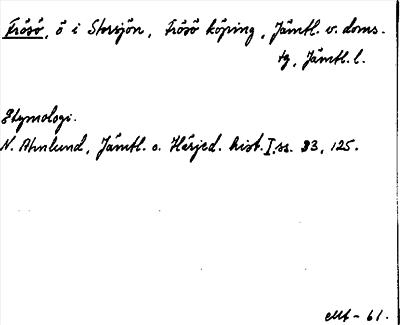 Frösö, ö i Storsjön, Frösö köping, Jämtl. v. doms.
tg, Jämtl. l.
Etymologi.
N. Ahnlund, Jämtl. o. Härjed. hist. I ss. 83, 125.
- 61.